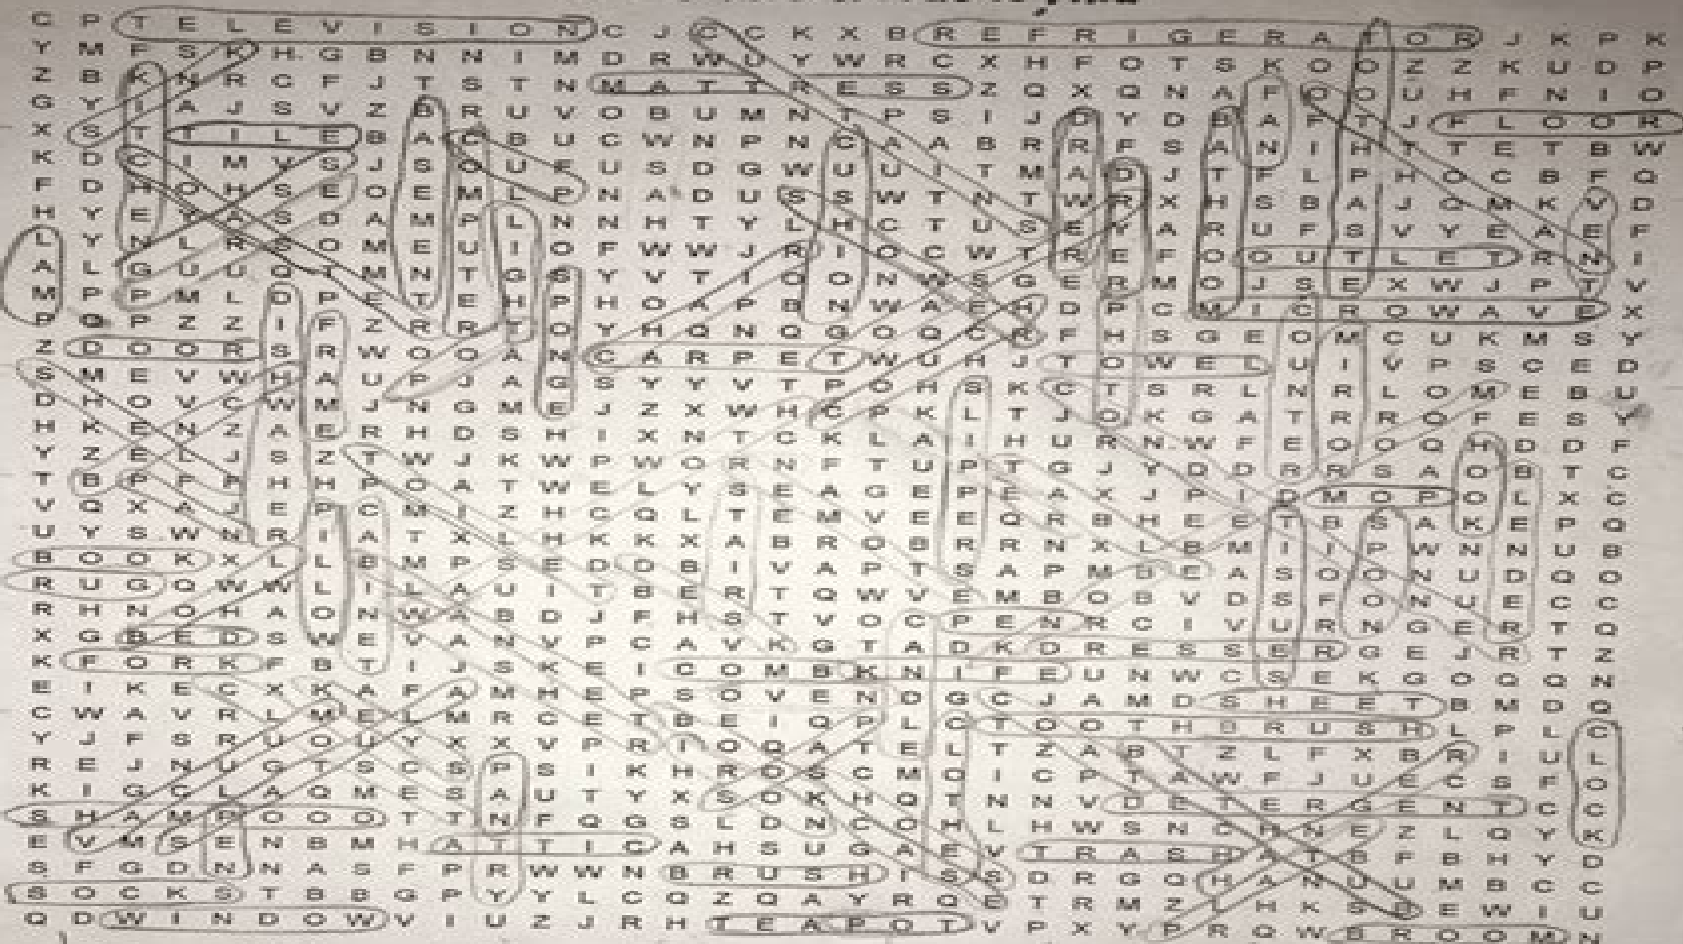 C P T E L E V I S I O N C J C C K X B R E F R I G E R A T O R J K P K
Y M F S K H G B N N I M D R W U Y W R C X H F O T S K O O Z Z K U D P
Z B K N R C F J T S T N M A T T R E S S Z Q X Q N A F O O U H F N I O
G Y I A J S V Z B R U V O B U M N T P S I J D Y D B A P T J F L O O R
X S T T I L E B A C B U C W N P N C A A B R R F S A N I H T T E T B W
K D C I M V S J S O U F U S D G W U U I T M A D J T F L P H O C B F Q
F D H O H S E O E M L P N A D U S S W T N T W R X H S B A J O M K V D
H Y E Y A S D A M P L N N H T Y L H C T U S E Y A R U F S V Y E A E F
L Y N L R S O M E U I O F W W J R I O C W T R E F O O U T L E T R N I
A L G U U O T M N T G S Y V T I O O N W S G E R M O J S E X W J P T V
M P P M L D P E T E H P H O A P B N W A E H D P C M I C R O W A V E X
P Q P Z Z I F Z R R T O Y H Q N Q G O Q C R F H S G E O M C U K M S Y
Z D O O R S R W O O A N C A R P E T W U H J T O W E L U I V P S C E D
S M E V W H A U P J A G S Y Y V T P O H S K C T S R L N R L O M E B U
D H O V C W M J N G M E J Z X W H C P K L T J O K G A T R R O F E S Y
H K E N Z A E R H D S H I X N T C K L A I H U R N W F E O O Q H D D F
Y Z E L J S Z T W J K W P W O R N F T U P T G J Y D D R R S A O B T C
T B P P P H H P O A T W E L Y S E A G E P E A X J P I D M O P O L X C
V Q X A J E P C M I Z H C Q L T E M V E E Q R B H E E T B S A K E P Q
U Y S W N R I A T X L H K K X A B R O B R R N X L B M I I P W N N U B
B O O K X L L B M P S E D D B I V A P T S A P M D E A S O O N U D Q O
R U G Q W W L I L A U I T B E R T Q W V E M B O B V D S F O N U E C C
R H N O H A O N W A B D J F H S T V O C P E N R C I V U R N G E R T Q
X G B E D S W E V A N V P C A V K G T A D K D R E S S E R G E J R T Z
K F O R K F B T I J S K E I C O M B K N I F E U N W C S E K G O Q Q N
E I K E C X K A F A M H E P S O V E N D G C J A M D S H E E T B M D Q
C W A V R L M E L M R C E T B E I Q P L C T O O T H B R U S H L P L C
Y J F S R U O U Y X X V P R I O Q A T E L T Z A B T Z L F X B R I U L
R E J N U G T S C S P S I K H R O S C M O I C P T A W F J U E C S F O
K I G C L A Q M E S A U T Y X S O K H Q T N N V D E T E R G E N T C C
S H A M P O O O T T N F Q G S L D N C O H L H W S N C H N E Z L Q Y K
E V M S E N B M H A T T I C A H S U G A E V T R A S H A T B F B H Y D
S F G D N N A S F P R W W N B R U S H I S S D R G Q H A N U U M B C C
S O C K S T B B G P Y Y L C Q Z Q A Y R Q E T R M Z L H K S B E W I U
Q D W I N D O W V I U Z J R H T E A P O T V P X Y P R Q W B R O O M N